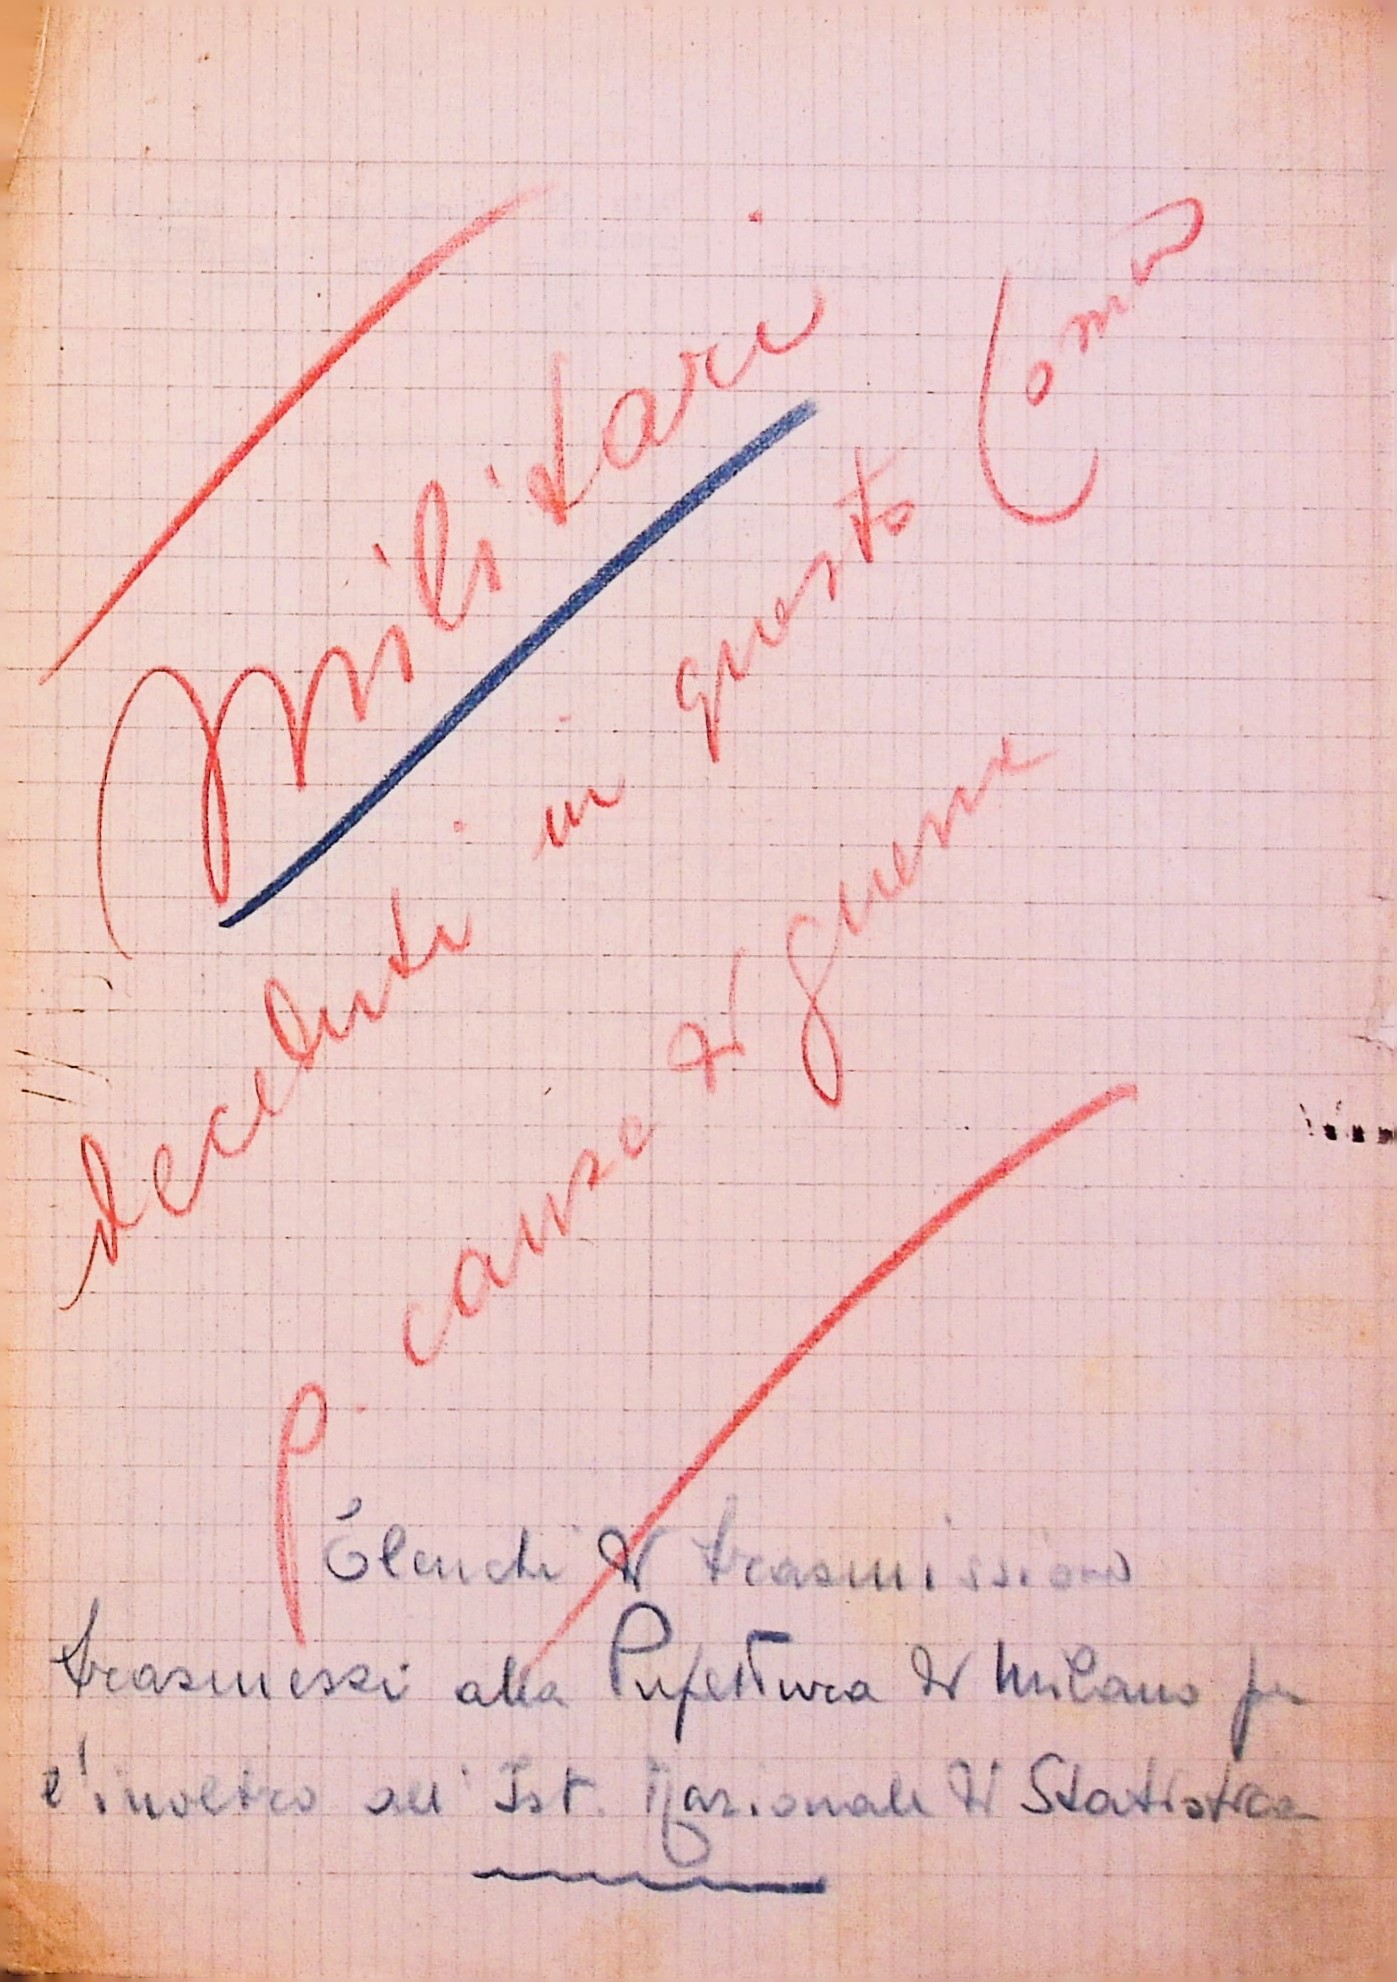 Militari
deceduti in questo Comune
p. cause di guerra
Elenchi di trasmissione
trasmessi alla Prefettura di Milano per
l'inoltro all' Ist. Nazionale di Statistica